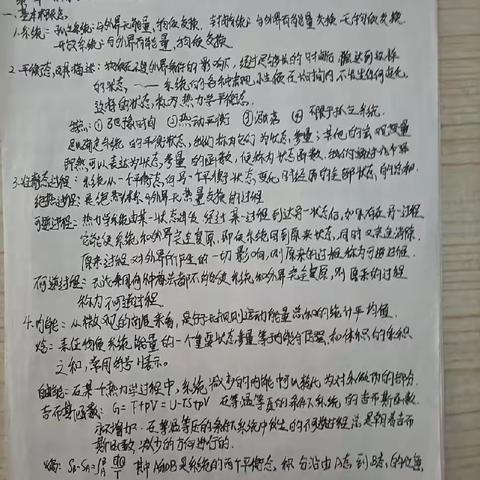 一、基本概念
1.系统:孤立系统:与外界无能量,物质交换 封闭系统:与外界有能量交换 无物质交换
开放系统:与外界有能量,物质交换
2.平衡态,及其描述:物体在不受外界条件的影响下,经过足够长的时间后 达到
的状态, 系统的各种宏观性质在长时间内不发生任何变化,
这样的状态称为热力学平衡态.
①弛豫时间 ②热动平衡 ③涨落 ④不限于孤立系统.
系统的平衡状态, 状态参量;其他的宏观物理量
既然可以表达为状态参量的函数,便称为状态函数.
3. 过程:系统从一个平衡态 另一个平衡状态变化时经历的全部状态的总和.
绝热过程: 系统 与外界无热量交换的过程
可逆过程:热力学系统由某一状态出发 经过某一过程到达另一状态后,如果存在另一过程
它能使系统和外界完全复原,即使系统回到原来状态,同时又完全消除
原来过程对外界所产生的一切影响,则原来的过程称为可逆过程.
不可逆过程:无论采用何种办法都不能使系统和外界完全复原,则原来的过程
称为不可逆过程
4.内能:从微观的角度来看,是分子无规则运动能量总和的统计平均值.
焓:表征物质系统能量的一个重要状态参量 等于内能与压强和体积的乘积
之和,常用符号H表示。
自由能:在某个热力学过程中,系统减少的内能中可以转化为对外做功的部分.
吉布斯函数:G=F+pV=U-TS+pV 在等温等压的条件下系统的吉布斯函数
永不增加. 在等温等压的条件下系统中发生的不可逆过程总是朝着吉布
斯函数减少的方向进行的.
熵: 其中A和B是系统的两个平衡态, 积分沿由A态到B态的